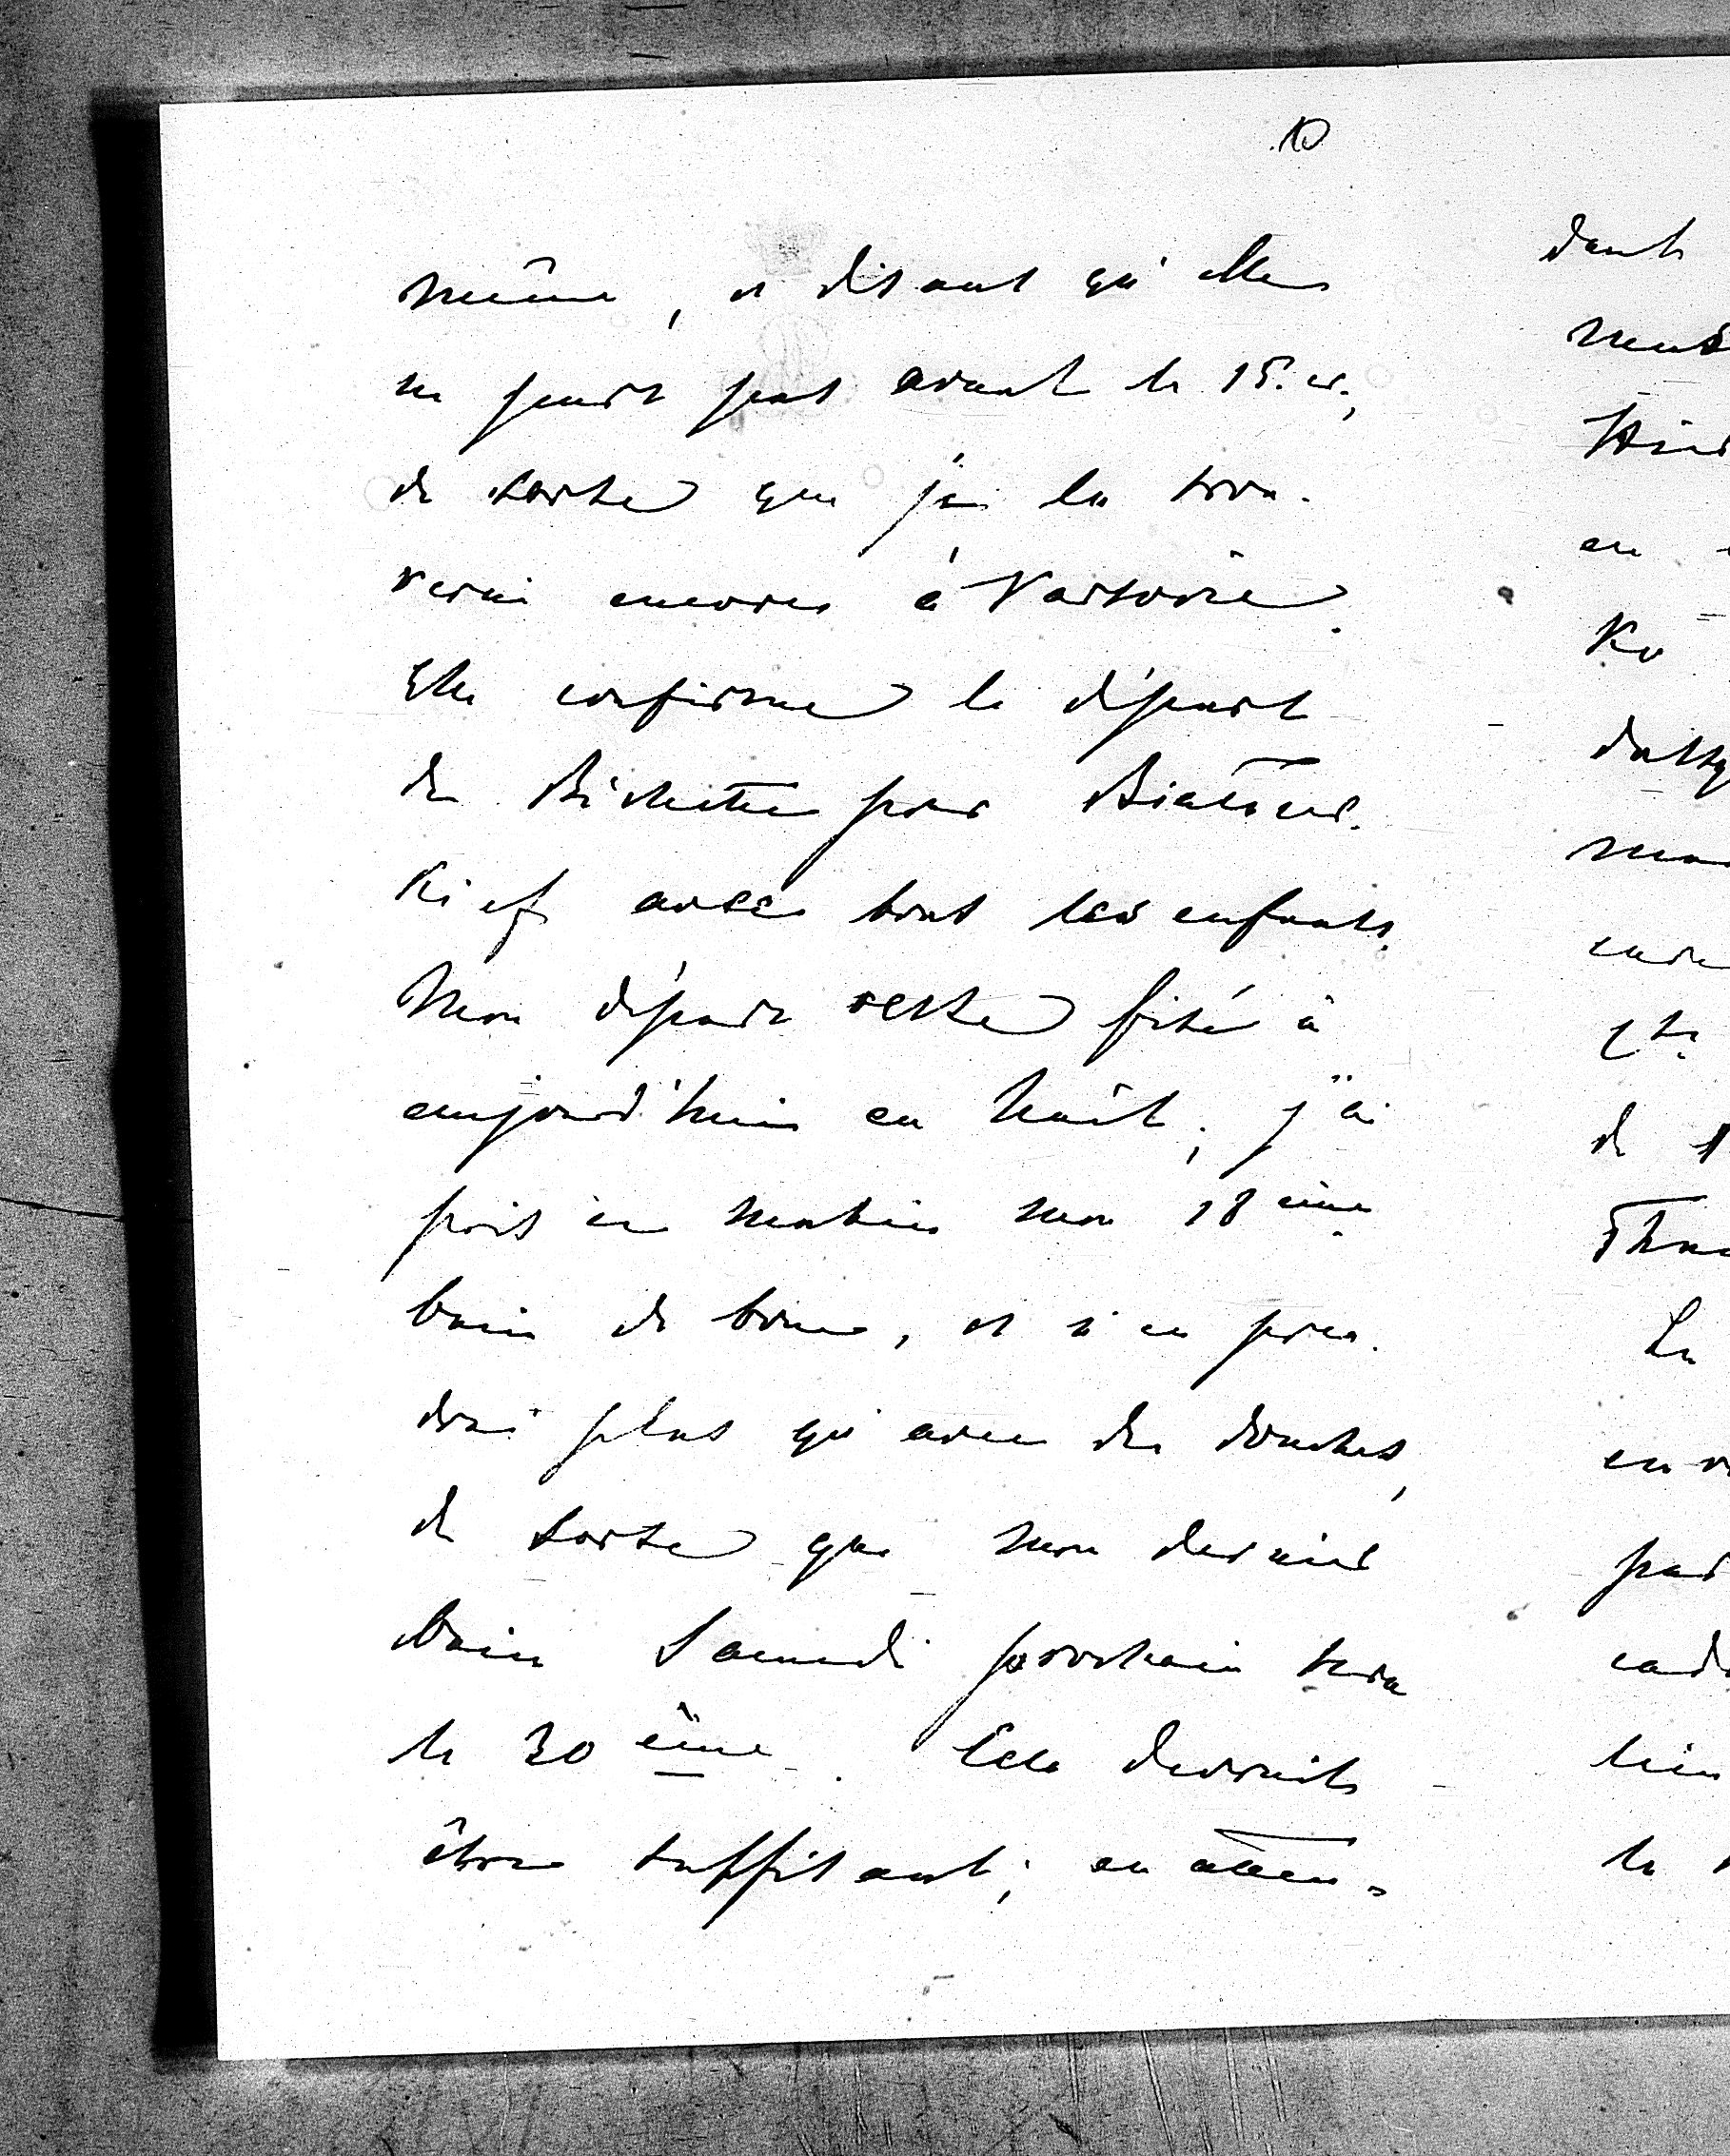 10
même, et disant qu'elle
ne part pas avant le 15. cr,
de sorte que je la trou-
verai encore à Varsovie.
Elle confirme le départ
de Bichette pour Biało cer-
kief avec tous les enfants.
Mon départ reste fixé à
aujourd'hui en huit; j'ai
pris ce matin mon 18 ème
bain de boue, et n'en pren-
drai plus qu'avec des douches,
de sorte que mon dernier
bain Samedi prochain sera
le 30 ème. Cela devrait
être suffisant; en atten-
dant
en
Ko
de
La
par
le